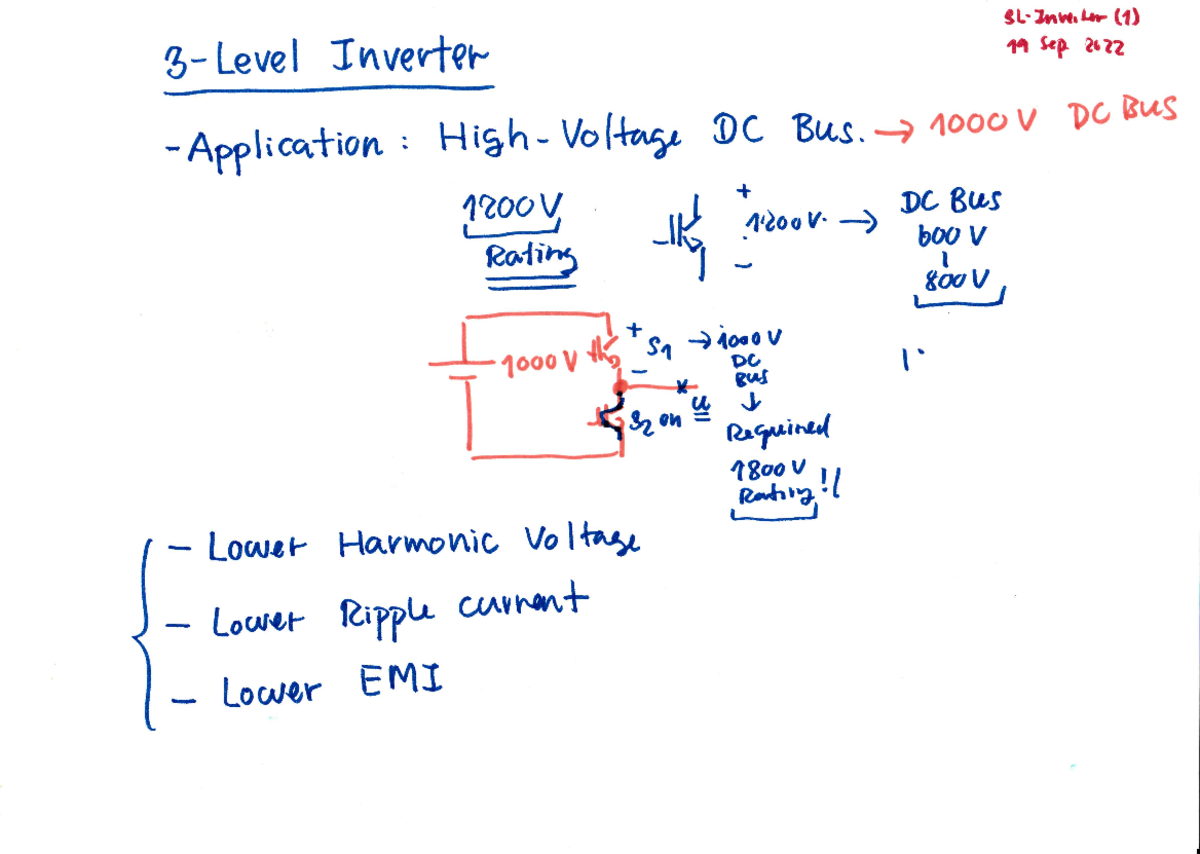 3L-Inverter (1)
19 Sep 2022
3-Level Inverter
- Application : High-Voltage DC Bus. → 1000 V DC Bus
1200 V
Rating
+
1200 V. →
-
DC Bus
600 V
800 V
1000 V
+
S1
-
→ 1000 V
DC
Bus
↓
S2 on
u
Required
1800 V
Rating !!
- Lower Harmonic Voltage
- Lower Ripple current
- Lower EMI